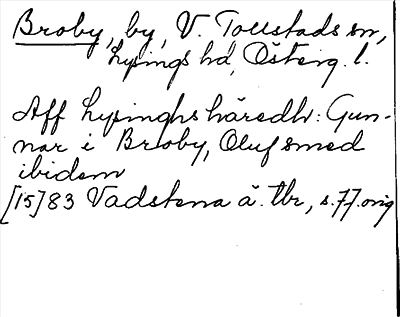 Broby, by, V. Tollstads sn,
Lysings hd, Österg. l.
Aff Lysinghshäredh: Gun-
nar i Broby, Oluf smed
ibidem
[15]83 Vadstena ä. tbr, s. 77. orig